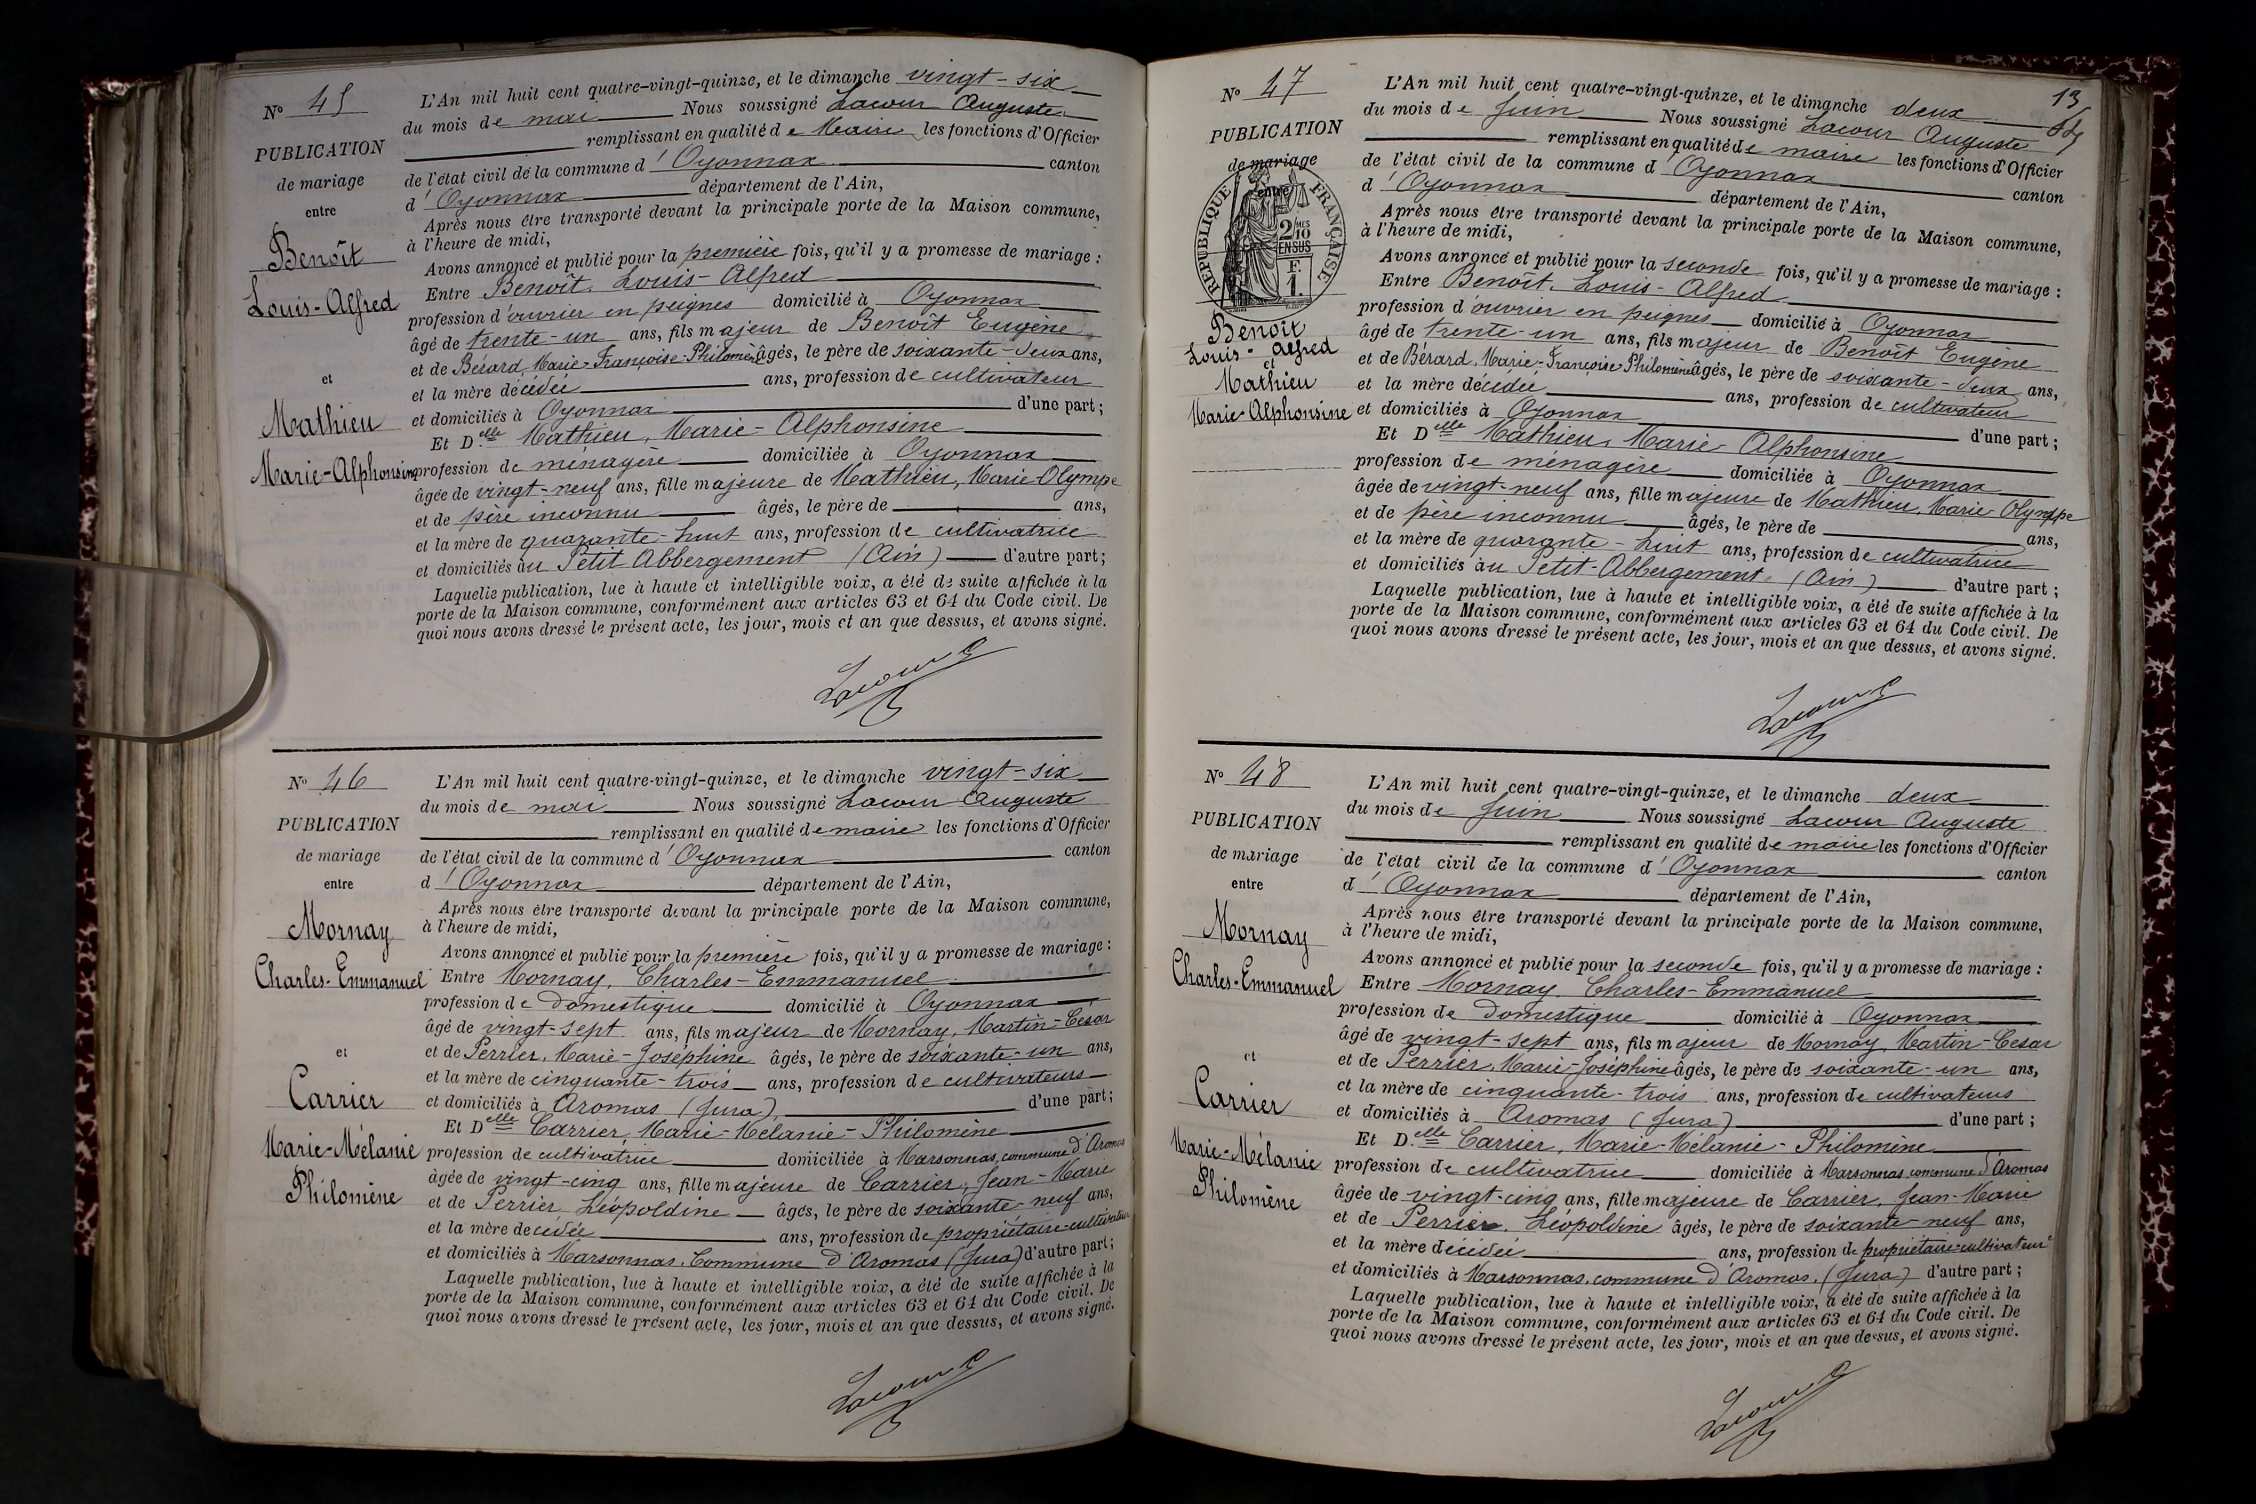 N° 45
PUBLICATION
de mariage
entre
Benoît
Louis-Alfred
et
Mathieu
Marie-Alphonsine
L'An mil huit cent quatre-vingt-quinze, et le dimanche vingt-six
du mois de mai Nous soussigné Lacour Auguste
remplissant en qualité de Maire les fonctions d'Officier
de l'état civil de la commune d'Oyonnax canton
d'Oyonnax département de l'Ain,
Après nous être transporté devant la principale porte de la Maison commune,
à l'heure de midi,
Avons annoncé et publié pour la première fois, qu'il y a promesse de mariage :
Entre Benoît, Louis-Alfred
profession d'ouvrier en peignes domicilié à Oyonnax
âgé de trente-un ans, fils majeur de Benoît Eugène
et de Bérard, Marie-Françoise-Philomène âgés, le père de soixante-deux ans,
et la mère décédée ans, profession de cultivateur
et domiciliés à Oyonnax d'une part ;
Et Delle Mathieu, Marie-Alphonsine
profession de ménagère domiciliée à Oyonnax
âgée de vingt-neuf ans, fille majeure de Mathieu, Marie-Olympe
et de père inconnu âgés, le père de ans,
et la mère de quarante-huit ans, profession de cultivatrice
et domiciliés au Petit Abbergement (Ain) d'autre part ;
Laquelle publication, lue à haute et intelligible voix, a été de suite affichée à la
porte de la Maison commune, conformément aux articles 63 et 64 du Code civil. De
quoi nous avons dressé le présent acte, les jour, mois et an que dessus, et avons signé.
Lacour
N° 46
PUBLICATION
de mariage
entre
Mornay
Charles-Emmanuel
et
Carrier
Marie-Mélanie
Philomène
L'An mil huit cent quatre-vingt-quinze, et le dimanche vingt-six
du mois de mai Nous soussigné Lacour Auguste
remplissant en qualité de maire les fonctions d'Officier
de l'état civil de la commune d'Oyonnax canton
d'Oyonnax département de l'Ain,
Après nous être transporté devant la principale porte de la Maison commune,
à l'heure de midi,
Avons annoncé et publié pour la première fois, qu'il y a promesse de mariage :
Entre Mornay, Charles-Emmanuel
profession de domestique domicilié à Oyonnax
âgé de vingt-sept ans, fils majeur de Mornay, Martin-César
et de Perrier, Marie-Joséphine âgés, le père de soixante-un ans,
et la mère de cinquante-trois ans, profession de cultivateurs
et domiciliés à Aromas (Jura) d'une part ;
Et Delle Carrier, Marie-Mélanie-Philomène
profession de cultivatrice domiciliée à Marsonnas, commune d'Aromas
âgée de vingt-cinq ans, fille majeure de Carrier, Jean-Marie
et de Perrier, Léopoldine âgés, le père de soixante-neuf ans,
et la mère décédée ans, profession de propriétaire-cultivateur
et domiciliés à Marsonnas, Commune d'Aromas (Jura) d'autre part ;
Laquelle publication, lue à haute et intelligible voix, a été de suite affichée à la
porte de la Maison commune, conformément aux articles 63 et 64 du Code civil. De
quoi nous avons dressé le présent acte, les jour, mois et an que dessus, et avons signé.
Lacour
13
N° 47
PUBLICATION
de mariage
entre
REPUBLIQUE FRANÇAISE
2/10MES
EN SUS
F.
1.
Benoît
Louis-Alfred
et
Mathieu
Marie-Alphonsine
L'An mil huit cent quatre-vingt-quinze, et le dimanche deux
du mois de Juin Nous soussigné Lacour Auguste
remplissant en qualité de maire les fonctions d'Officier
de l'état civil de la commune d'Oyonnax canton
d'Oyonnax département de l'Ain,
Après nous être transporté devant la principale porte de la Maison commune,
à l'heure de midi,
Avons annoncé et publié pour la seconde fois, qu'il y a promesse de mariage :
Entre Benoît, Louis-Alfred
profession d'ouvrier en peignes domicilié à Oyonnax
âgé de trente-un ans, fils majeur de Benoît Eugène
et de Bérard, Marie-Françoise Philomène âgés, le père de soixante-deux ans,
et la mère décédée ans, profession de cultivateur
et domiciliés à Oyonnax d'une part ;
Et Delle Mathieu, Marie-Alphonsine
profession de ménagère domiciliée à Oyonnax
âgée de vingt-neuf ans, fille majeure de Mathieu, Marie Olympe
et de père inconnu âgés, le père de ans,
et la mère de quarante-huit ans, profession de cultivatrice
et domiciliés au Petit-Abbergement (Ain) d'autre part ;
Laquelle publication, lue à haute et intelligible voix, a été de suite affichée à la
porte de la Maison commune, conformément aux articles 63 et 64 du Code civil. De
quoi nous avons dressé le présent acte, les jour, mois et an que dessus, et avons signé.
Lacour
N° 48
PUBLICATION
de mariage
entre
Mornay
Charles-Emmanuel
et
Carrier
Marie-Mélanie
Philomène
L'An mil huit cent quatre-vingt-quinze, et le dimanche deux
du mois de Juin Nous soussigné Lacour Auguste
remplissant en qualité de maire les fonctions d'Officier
de l'état civil de la commune d'Oyonnax canton
d'Oyonnax département de l'Ain,
Après nous être transporté devant la principale porte de la Maison commune,
à l'heure de midi,
Avons annoncé et publié pour la seconde fois, qu'il y a promesse de mariage :
Entre Mornay, Charles-Emmanuel
profession de domestique domicilié à Oyonnax
âgé de vingt-sept ans, fils majeur de Mornay, Martin-Cesar
et de Perrier, Marie-Joséphine âgés, le père de soixante-un ans,
et la mère de cinquante-trois ans, profession de cultivateurs
et domiciliés à Aromas (Jura) d'une part ;
Et Delle Carrier, Marie-Mélanie-Philomène
profession de cultivatrice domiciliée à Marsonnas, commune d'Aromas
âgée de vingt-cinq ans, fille majeure de Carrier, Jean-Marie
et de Perrier, Léopoldine âgés, le père de soixante-neuf ans,
et la mère décédée ans, profession de propriétaire-cultivateur
et domiciliés à Marsonnas, commune d'Aromas, (Jura) d'autre part ;
Laquelle publication, lue à haute et intelligible voix, a été de suite affichée à la
porte de la Maison commune, conformément aux articles 63 et 64 du Code civil. De
quoi nous avons dressé le présent acte, les jour, mois et an que dessus, et avons signé.
Lacour